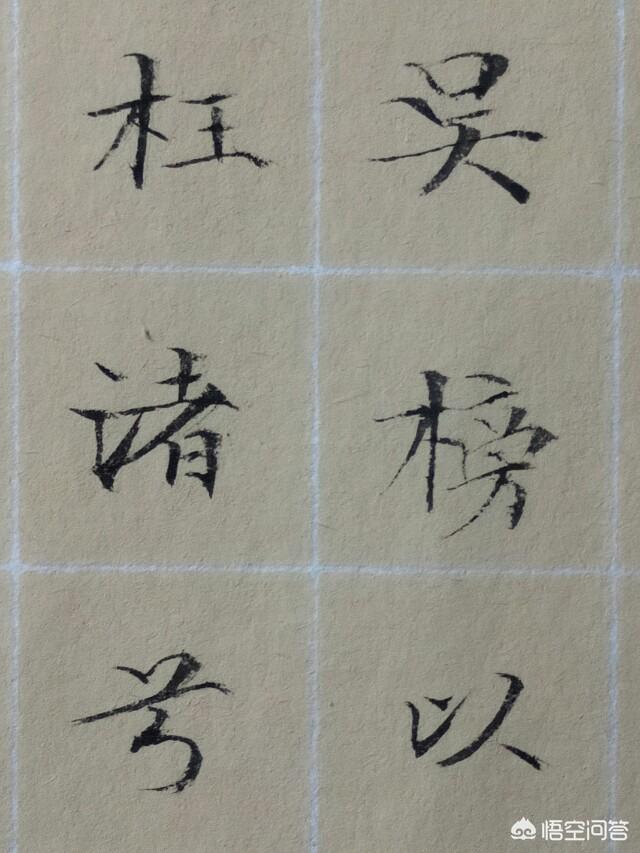 吴榜以
枉渚兮
悟空问答